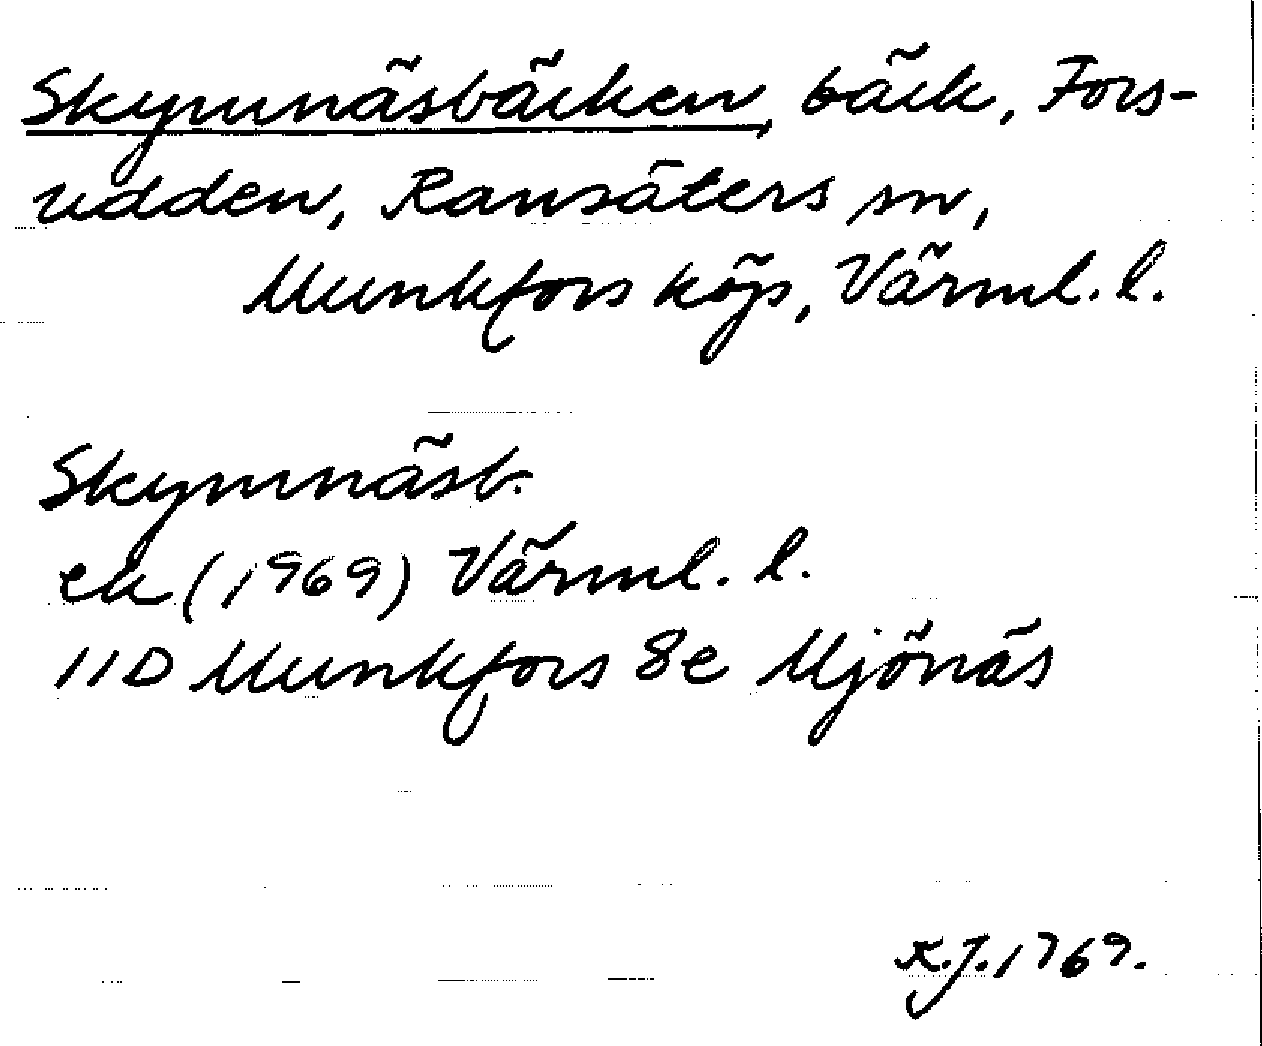 Skymnäsbäcken, bäck, Fors-
udden, Ransäters sn,
Munkfors köp, Värml. l.
Skymnäsb.
ek (1969) Värml. l.
11D Munkfors 8e Mjönäs
K.J. 1969.